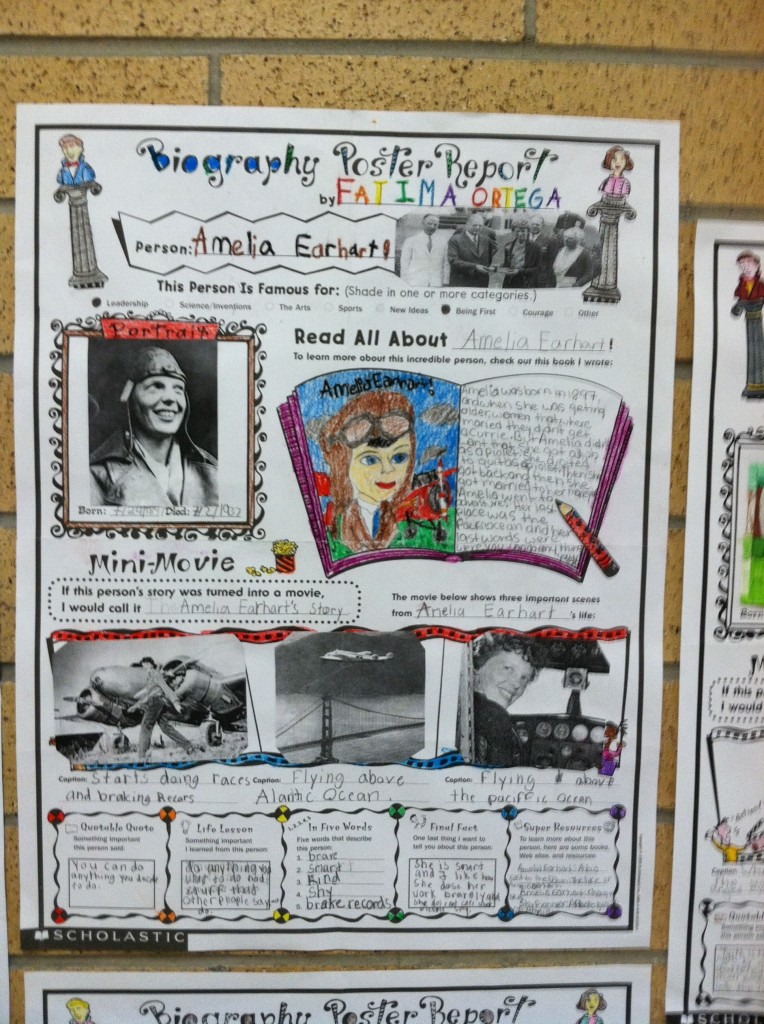 Biography Poster Report
by FATIMA ORTEGA
Person: Amelia Earhart!
This Person Is Famous for: (Shade in one or more categories.)
Leadership Science/Inventions The Arts Sports New Ideas Being First Courage Other
Portrait
Read All About Amelia Earhart!
To learn more about this incredible person, check out this book I wrote:
Amelia Earhart!
Amelia was born in 1897,
and when she was getting
older, women that where
maried they don't get
got back and then she
got married to her
Amelia went to
place was the
ocean and her
last words were
Born: Died:
Mini-Movie
If this person's story was turned into a movie,
I would call it The Amelia Earhart's Story
The movie below shows three important scenes
from Amelia Earhart 's life:
Caption: Starts doing races
and braking Recors
Caption: Flying above
Alantic Ocean.
Caption: Flying above
the paciffic ocean
Quotable Quote
Something important
this person said:
You can do
anything you decide
to do.
Life Lesson
Something important
I learned from this person:
do anything you
want to do and
stuff that
other people say
do.
In Five Words
Five words that describe
this person:
1. brave
2. smart
3. kind
4. shy
5. brake records
Final Fact
One last thing I want to
tell you about this person:
She is smart
and I like how
she does her
work bravely and
Super Resources
To learn more about this
person, here are some books,
Web sites, and resources:
SCHOLASTIC
If this p
I would
Caption:
Quotab
Something
this person
SCHOL
Biography Poster Report